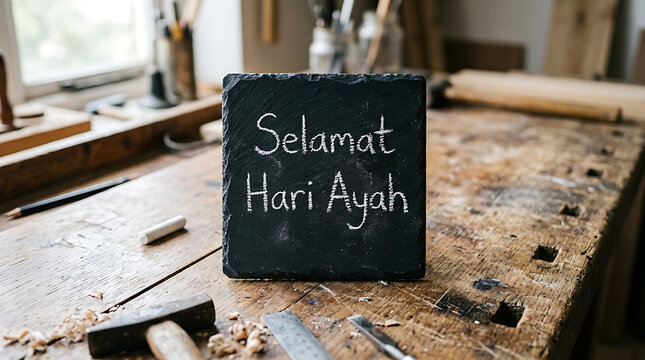 Selamat
Hari Ayah